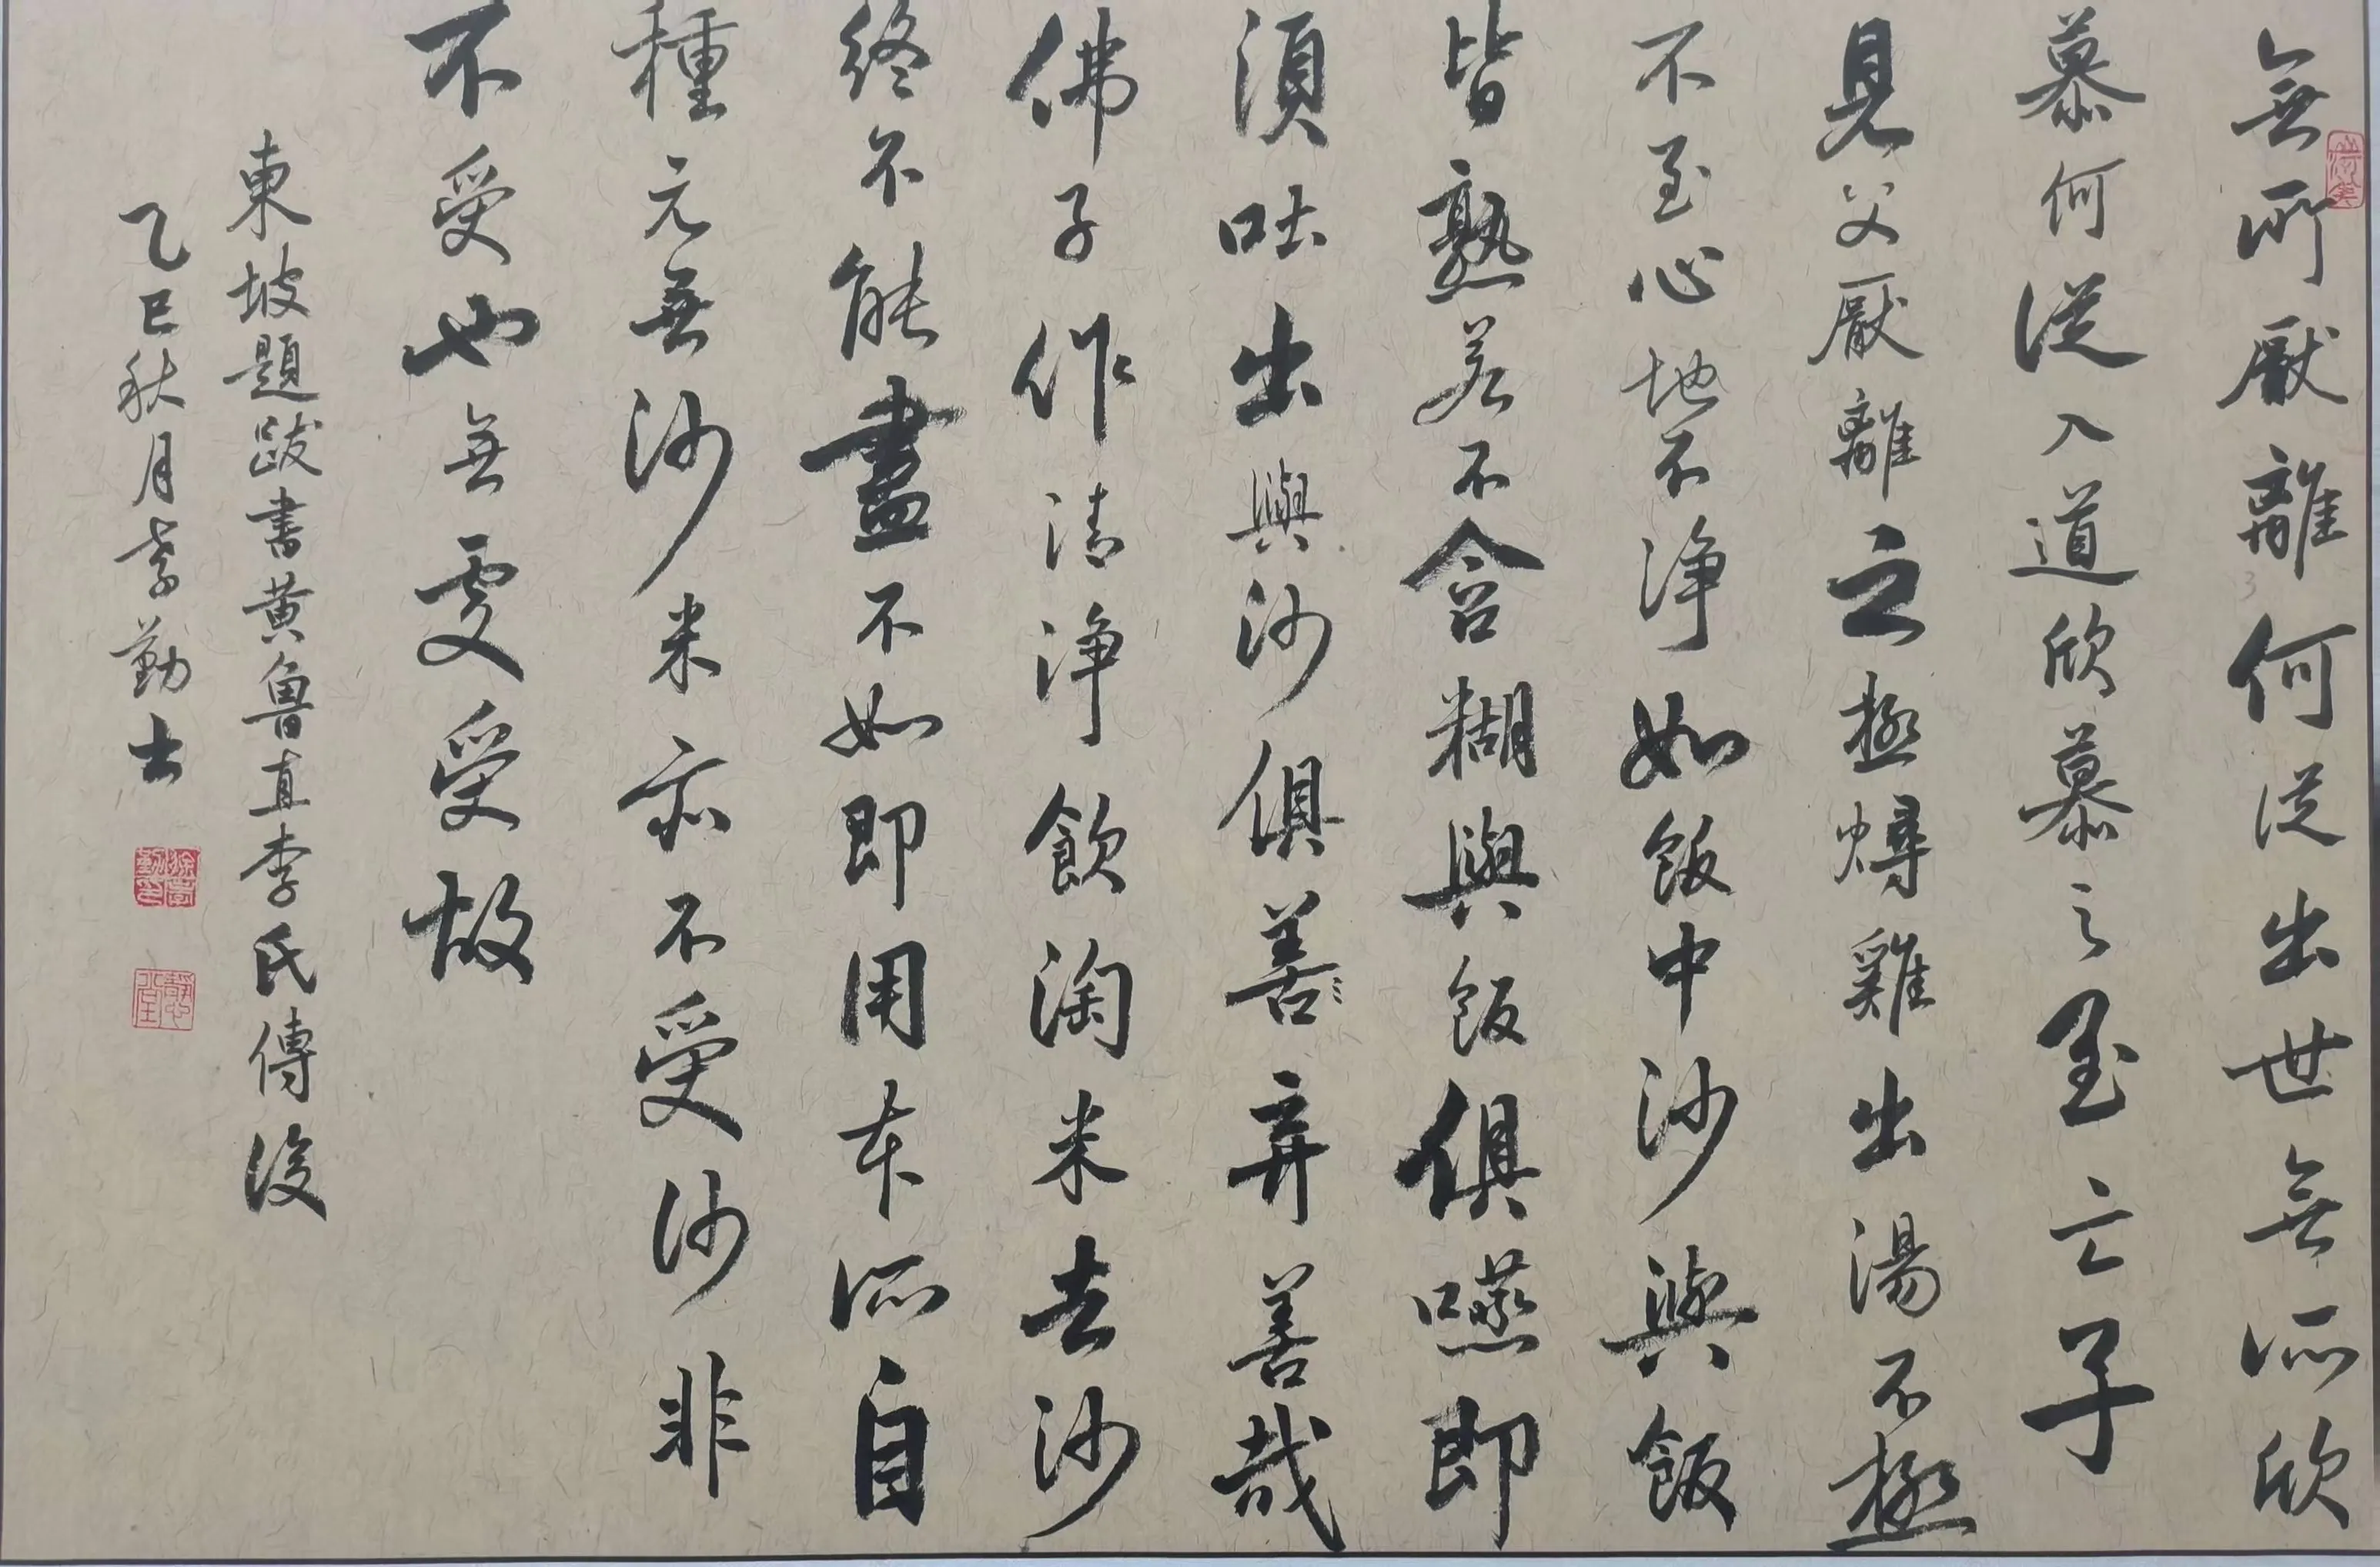 無所厭離何從出世無所欣
慕何從入道欣慕之至亡子
見父厭離之極燖雞出湯不極
不至心地不淨如飯中沙與飯
皆熟若不含糊與飯俱嚥即
須吐出與沙俱善弃善哉
佛子作清淨飲淘米去沙
終不能盡不如即用本所自
種元無沙米亦不受沙非
不受也無受受故
東坡題跋書黄魯直李氏傳後
乙巳秋月 勤士